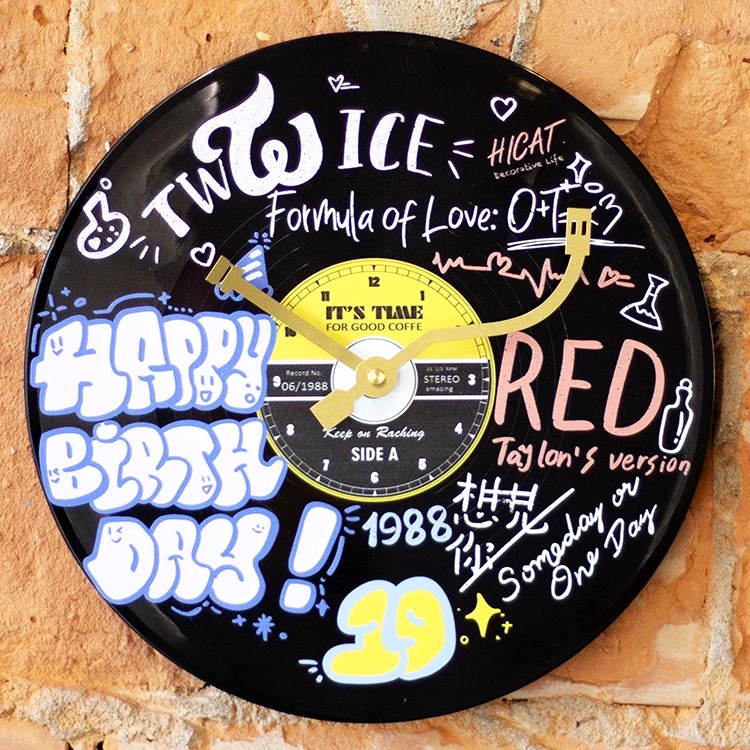 TWICE
HICAT
Decorative Life
Formula of Love: O+T=<3
12
11
1
IT'S TIME
FOR GOOD COFFE
10
HAPPY
BIRTH
DAY!
Record No.
06/1988
33 1/3 RPM
STEREO
amazing
9
3
8
4
Keep on Raching
SIDE A
7
5
6
RED
Taylon's version
1988
想見
你
Someday or
One Day
19